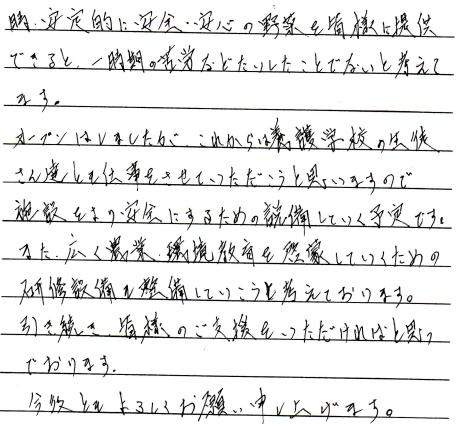 時、安定的に安全・安心の野菜を皆様に提供
できると、一時期の苦労などたいしたことでないと考えて
ます。
オープンはしましたが、これからは養護学校の生徒
さん達とも仕事をさせていただこうと思いますので
施設をより安全にするための設備していく予定です。
また、広く農業、環境教育を啓蒙していくための
研修設備も整備していこうと考えております。
引き続き、皆様のご支援をいただければと思っ
ております。
今後ともよろしくお願い申し上げます。